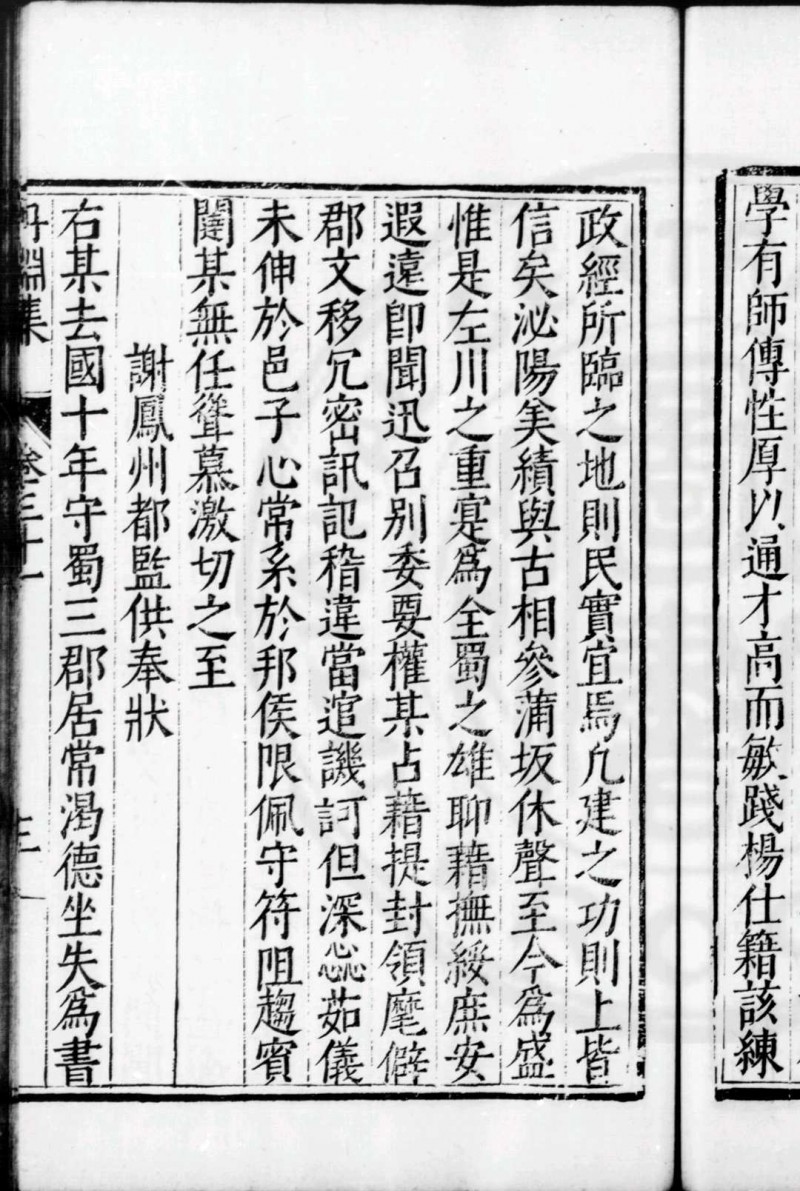 學有師傳性厚以通才高而敏踐楊仕籍該練
政經所臨之地則民實宜焉凡建之功則上皆
信矣泌陽美績與古相參蒲坂休聲至今爲盛
惟是左川之重寔爲全蜀之雄聊藉撫綏庶安
遐遠卽聞迅召别委要權某占藉提封領麾僻
郡文移冗密訊記稽違當逭譏訶但深惢茹儀
未伸於邑子心常系於邦侯限佩守符阻趨賓
闥某無任聳慕激切之至
謝鳳州都監供奉狀
右某去國十年守蜀三郡居常渴德坐失爲書
丹淵集 卷三十一 三